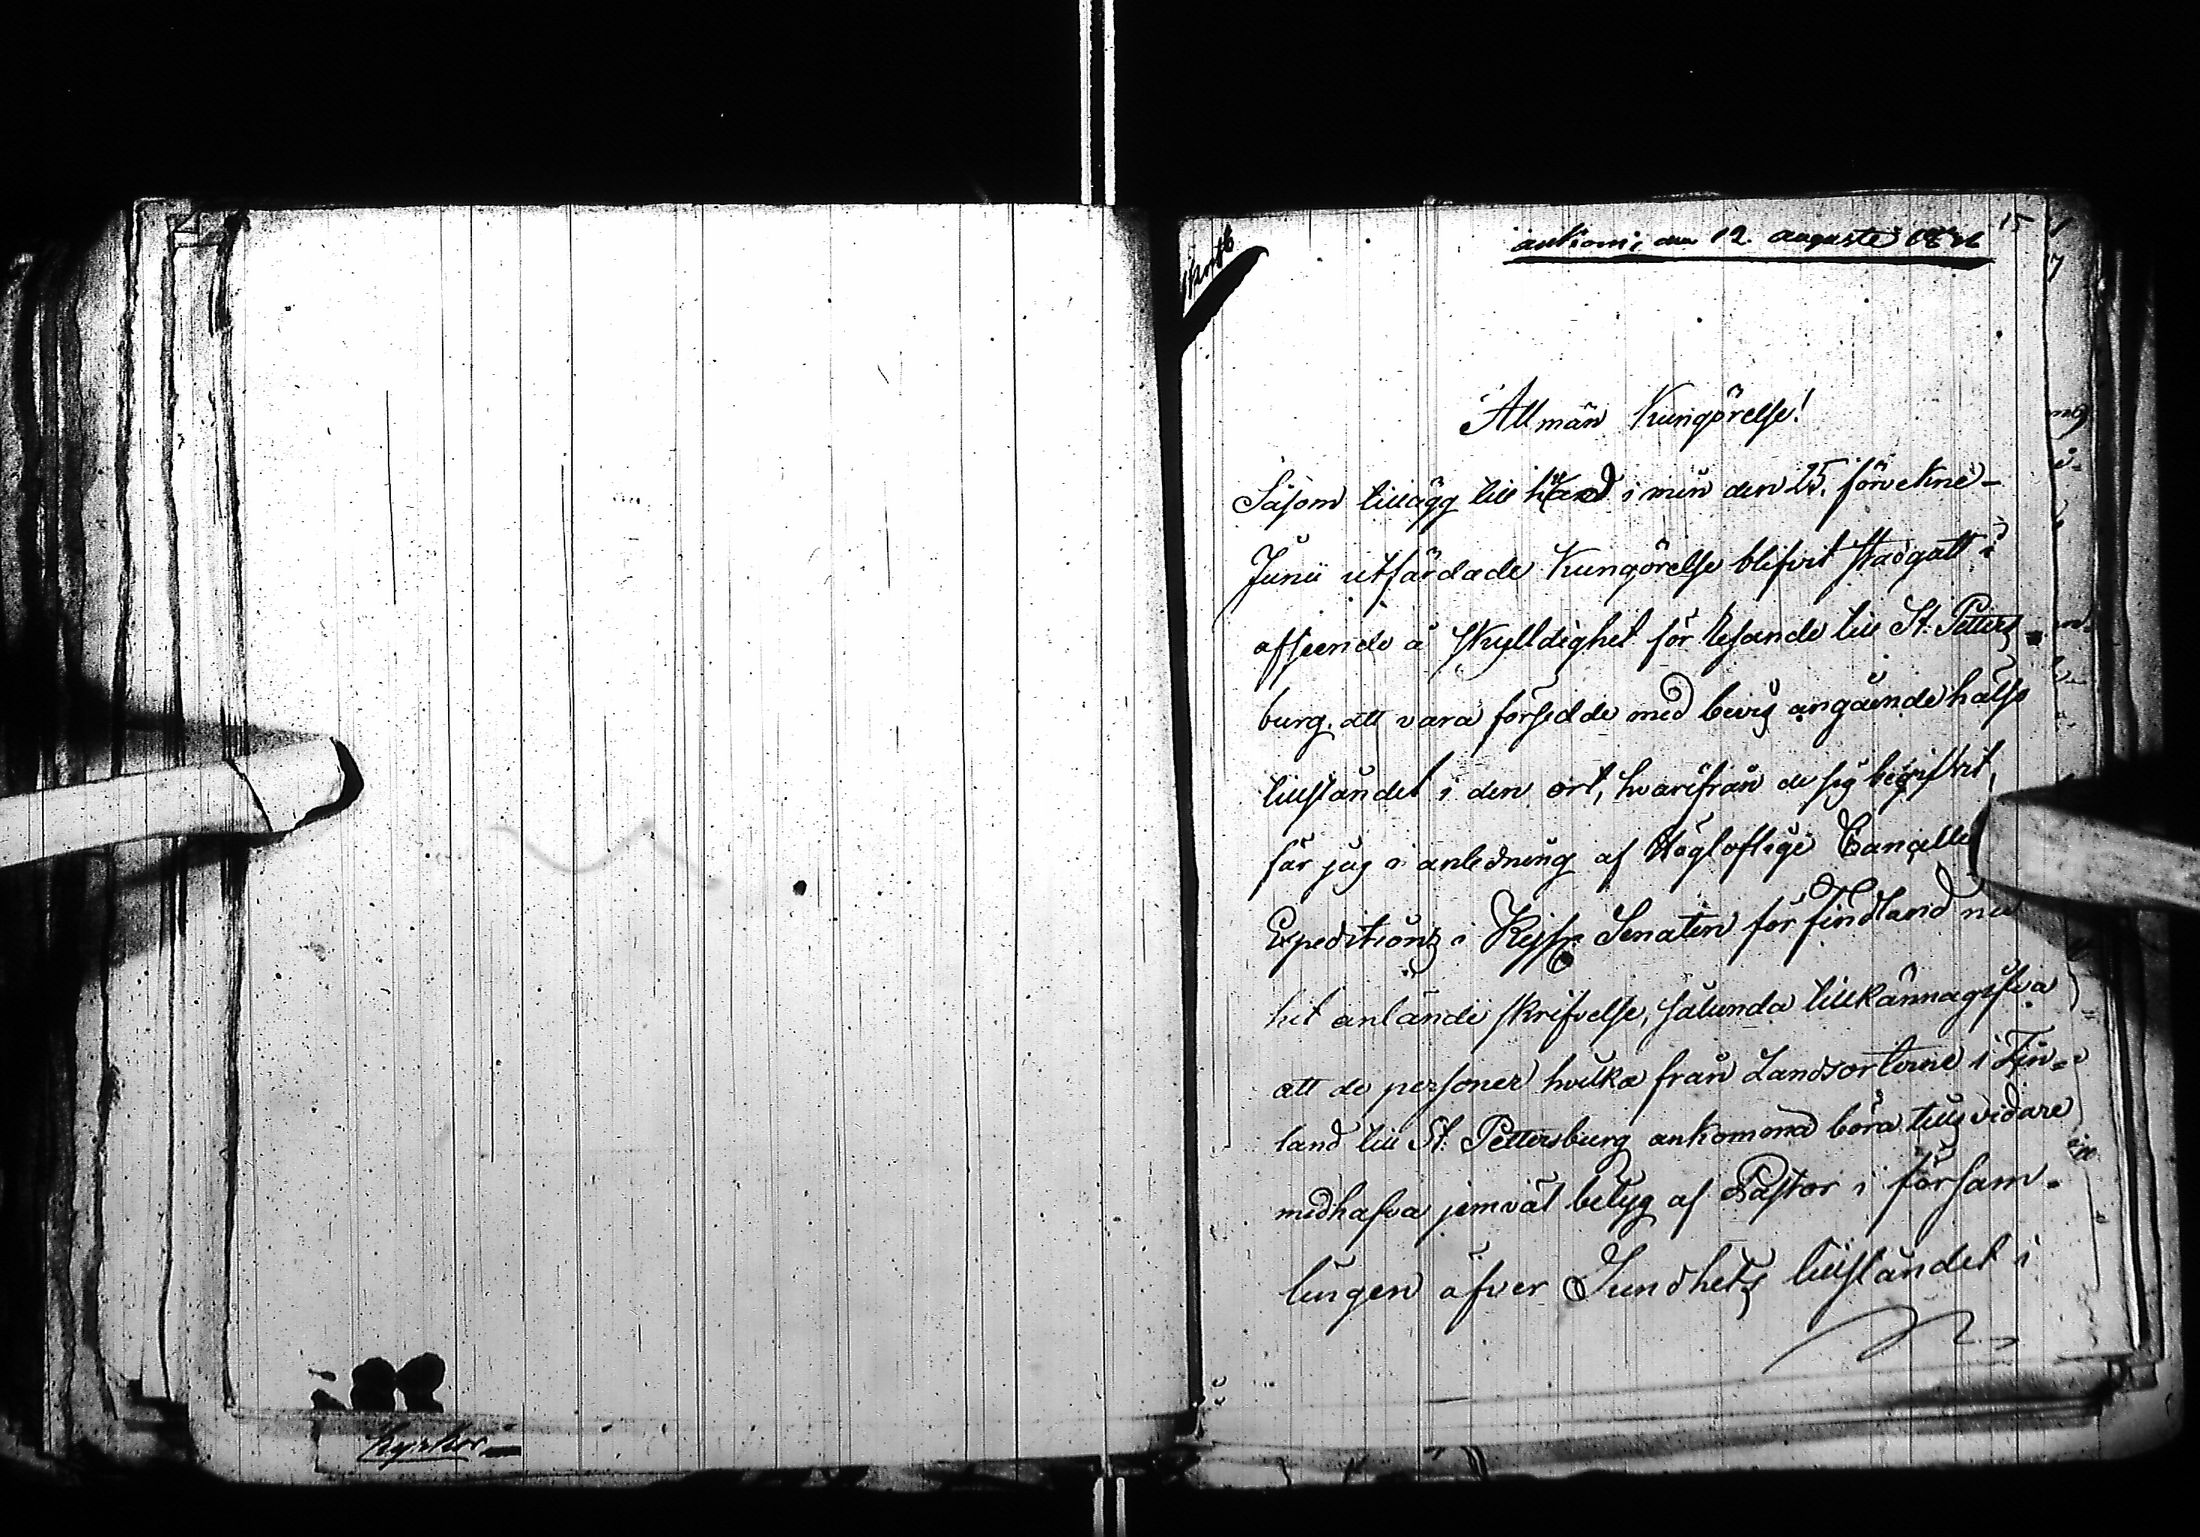 15
ankom: den 12. augusti 1831
Allmän Kungörelse!
Såsom tillägg till hvad i min den 25. förvekne
Junii utfärdade Kungörelse blifvit stadgatt i
afseende å skylldighet för Resande till St. Petters-
burg. att vara försedde med bevis angående hälso
tillståndet i den ort, hvarifrån de sig begifvit,
får jag i anledning af Högloflige Cancellie
Expeditions i Kejsr. Senaten för Findland nu
hit anlände skrifvelse, sålunda tillkännagifva
att de personer hvilka från Landsorterne i Fin-
land till St. Pettersburg ankomma böra tills vidare
medhafva jemväl betyg af Pastor i försam-
lingen öfver Sundhets tillståndet i
kyrkor